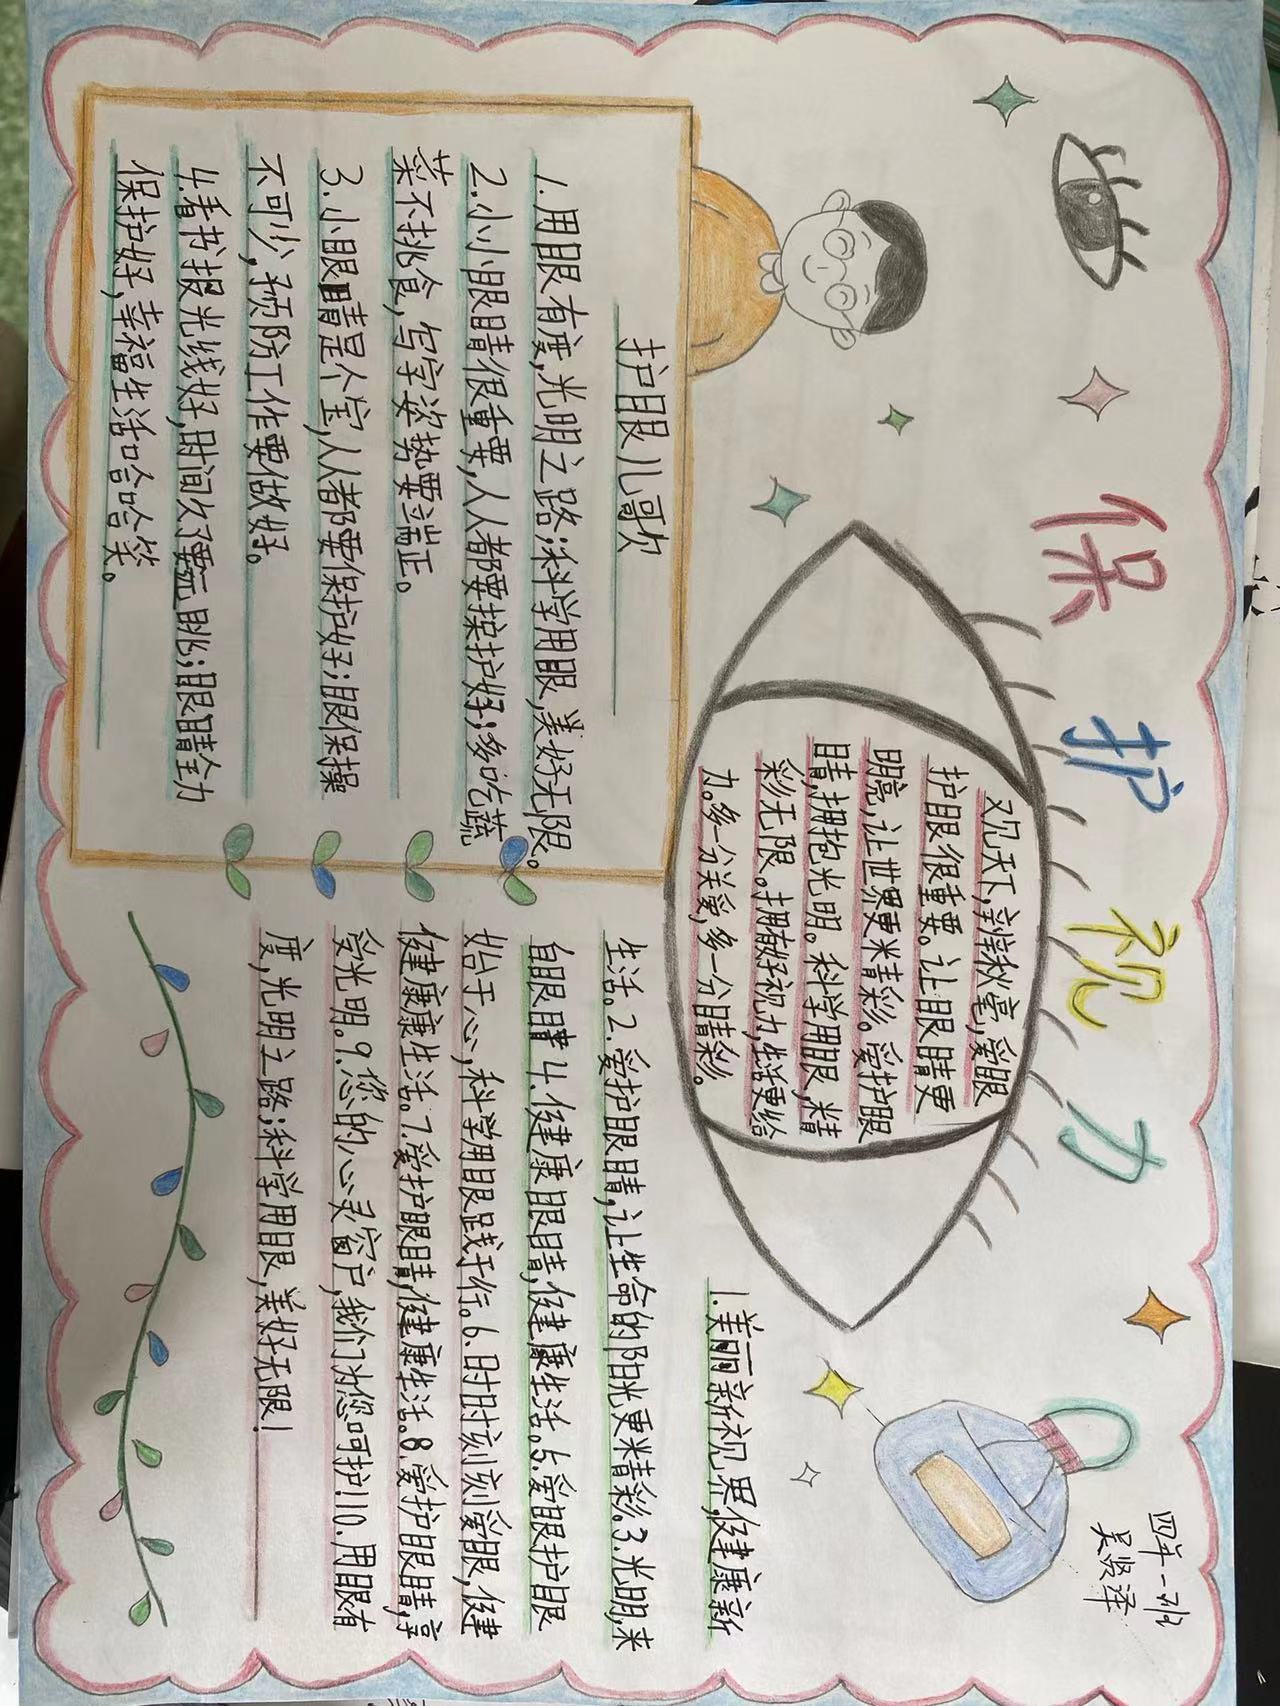 保护视力
四年一班
吴贤泽
护眼儿歌
1.用眼有度,光明之路;科学用眼,美好无限。
2.小小眼睛很重要,人人都要保护好;多吃蔬
菜不挑食,写字姿势要端正。
3.小眼睛是个宝,人人都要保护好;眼保操
不可少,预防工作要做好。
4.看书报光线好,时间久了要远眺;眼睛全力
保护好,幸福生活哈哈笑。
观天下,辨秋毫,爱眼
护眼很重要。让眼睛更
明亮,让世界更精彩。爱护眼
睛,拥抱光明。科学用眼,精
彩无限。拥有好视力,生活更给
力。多一分关爱,多一分睛彩。
1.美丽新视界,健康新
生活。2.爱护眼睛,让生命的阳光更精彩。3.光明,来
自眼睛4.健康眼睛,健康生活。5.爱眼护眼
始于心,科学用眼践于行。6.时时刻刻爱眼,健
健康康生活。7.爱护眼睛,健康生活。8.爱护眼睛,享
受光明。9.您的心灵窗户,我们为您呵护!10.用眼有
度,光明之路;科学用眼,美好无限!